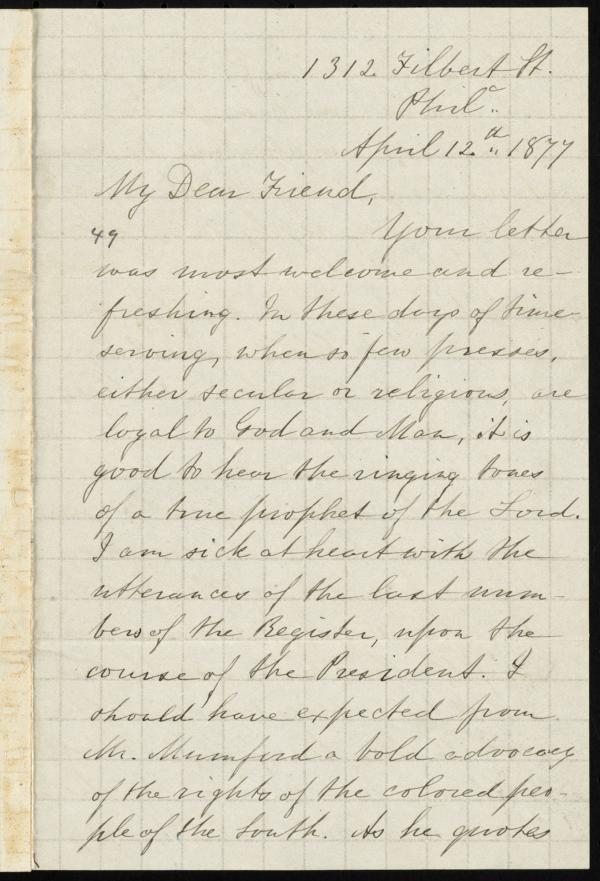 1312 Filbert St.
Phila.
April 12th 1877
My Dear Friend,
49
Your letter
was most welcome and re-
freshing. In these days of time-
serving, when so few presses,
either secular or religious, are
loyal to God and Man, it is
good to hear the ringing tones
of a true prophet of the Lord.
I am sick at heart with the
utterances of the last num-
bers of the Register, upon the
course of the President. I
should have expected from
Mr. Mumford a bold advocacy
of the rights of the colored peo-
ple of the South. As he quotes